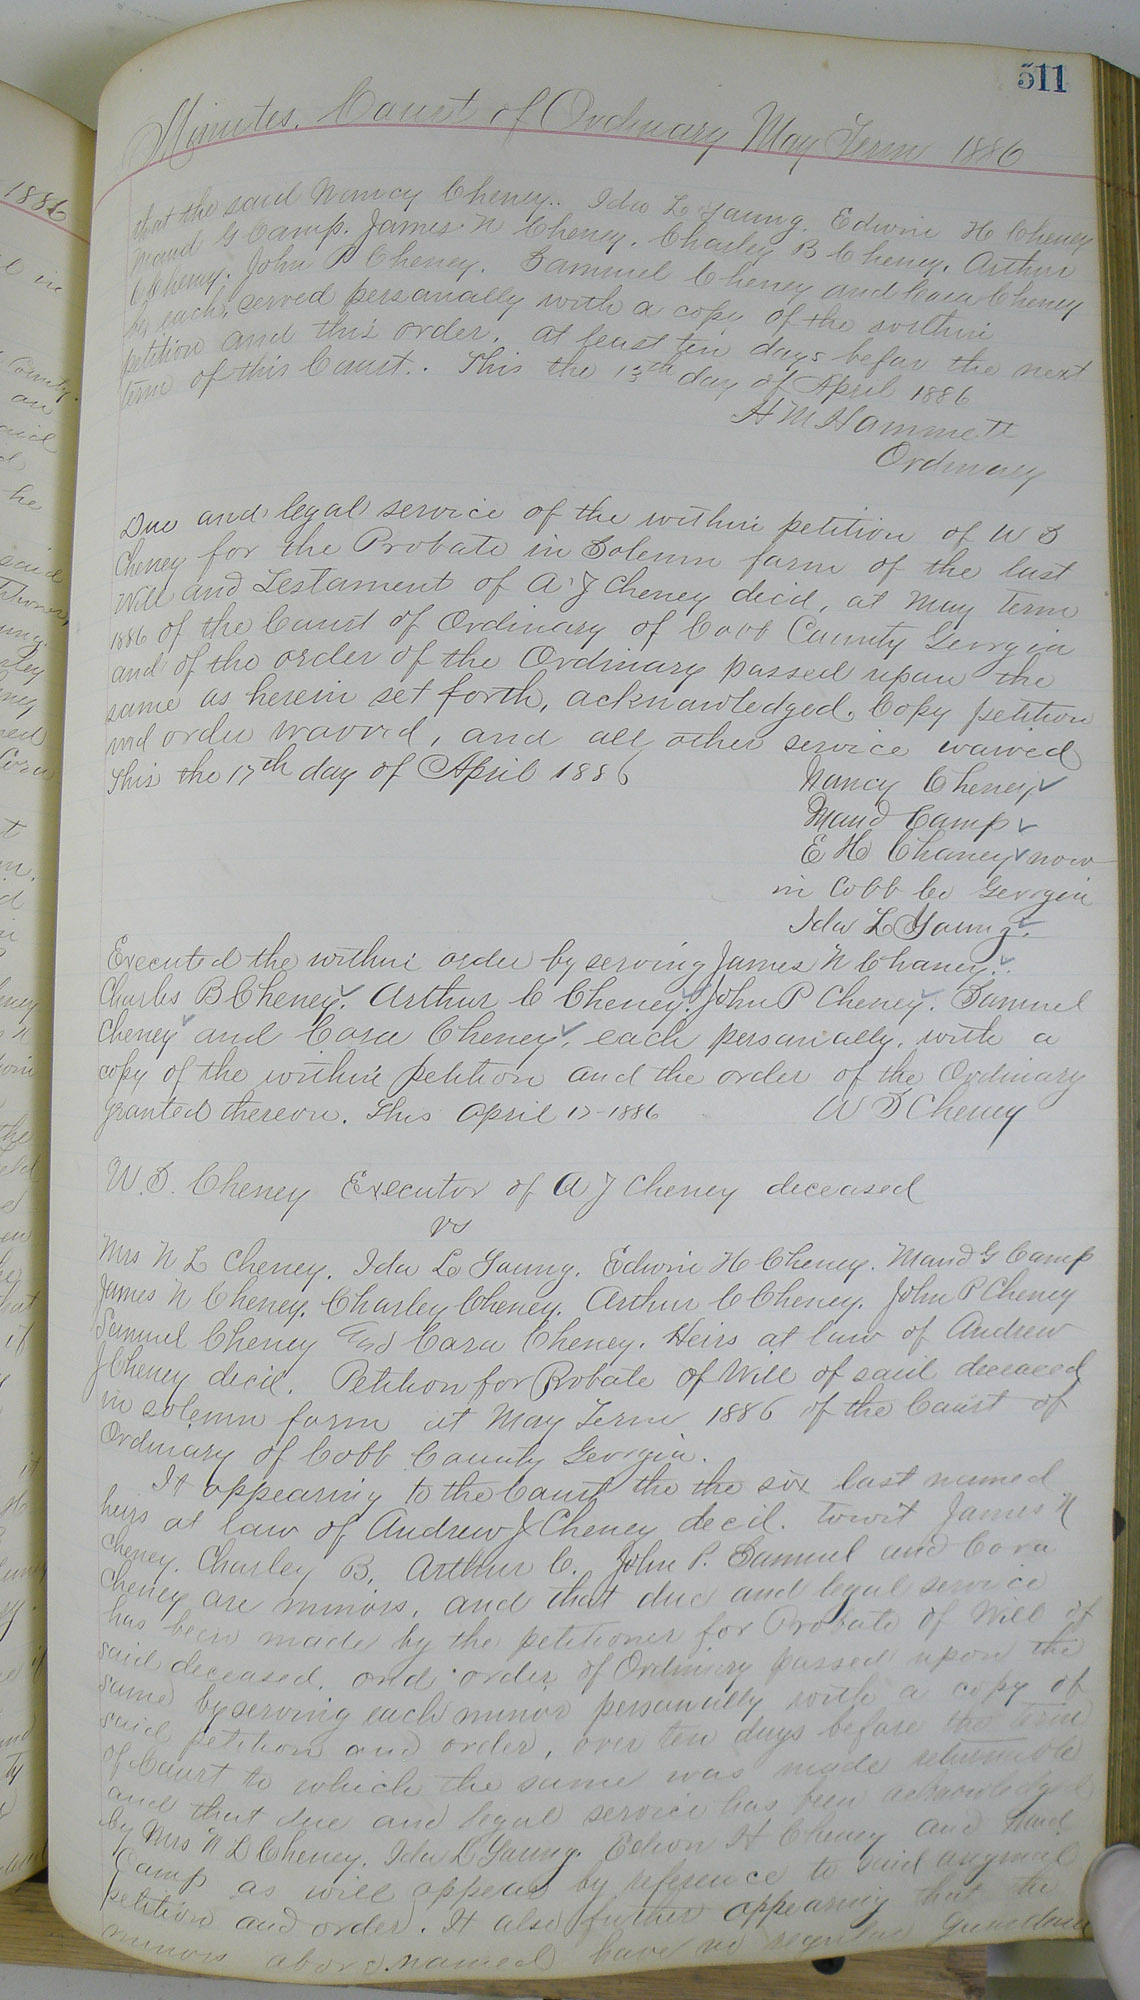 511
Minutes. Court of Ordinary May Term 1886
that the said Nancy Cheney.. Ida L Young. Edwin H Cheney
Maud G Camp. James N Cheney. Charley B Cheney. Arthur
C Cheney. John P Cheney. Samuel Cheney and Cora Cheney
be each served personally with a copy of the within
petition and this order. at least ten days before the next
term of this Court.. This the 13th day of April 1886
H M Hammett
Ordinary
Due and legal service of the within petition of W D
Cheney for the Probate in Solemn form of the last
Will and Testament of A J Cheney decd, at May Term
1886 of the Court of Ordinary of Cobb County Georgia
and of the order of the Ordinary passed upon the
same as herein set forth, acknowledged. Copy petition
and order waived, and all other service waived
This the 17th day of April 1886
Nancy Cheney
Maud Camp
E H Chaney now
in Cobb Co Georgia
Ida L Young.
Executed the within order by serving James N Chaney.
Charles B Cheney. Arthur C Cheney. John P Cheney. Samuel
Cheney and Cora Cheney. each personally. with a
copy of the within petition and the order of the Ordinary
granted thereon. This April 17-1886 W D Cheney
W. D. Cheney Executor of A J Cheney deceased
vs
Mrs N L Cheney. Ida L Young. Edwin H Cheney. Maud G Camp
James N Cheney. Charley Cheney. Arthur C Cheney. John P Cheney
Samuel Cheney and Cora Cheney. Heirs at law of Andrew
J Cheney decd. Petition for Probate of Will of said deceased
in solemn form at May Term 1886 of the Court of
Ordinary of Cobb County Georgia.
It appearing to the Court the the six last named
heirs at law of Andrew J Cheney decd. towit James N
Cheney. Charley B. Arthur C. John P. Samuel and Cora
Cheney are minors. and that due and legal service
has been made by the petitioner for Probate of Will of
said deceased. and order of Ordinary passed upon the
same by serving each minor personally with a copy of
said petition and order, over ten days before the term
of Court to which the same was made returnable
and that due and legal service has been acknowledged
by Mrs N L Cheney. Ida L Young. Edwin H Cheney and Maud
Camp as will appear by reference to said original
petition and order. It also further appearing that the
minors above named have no regular Guardian